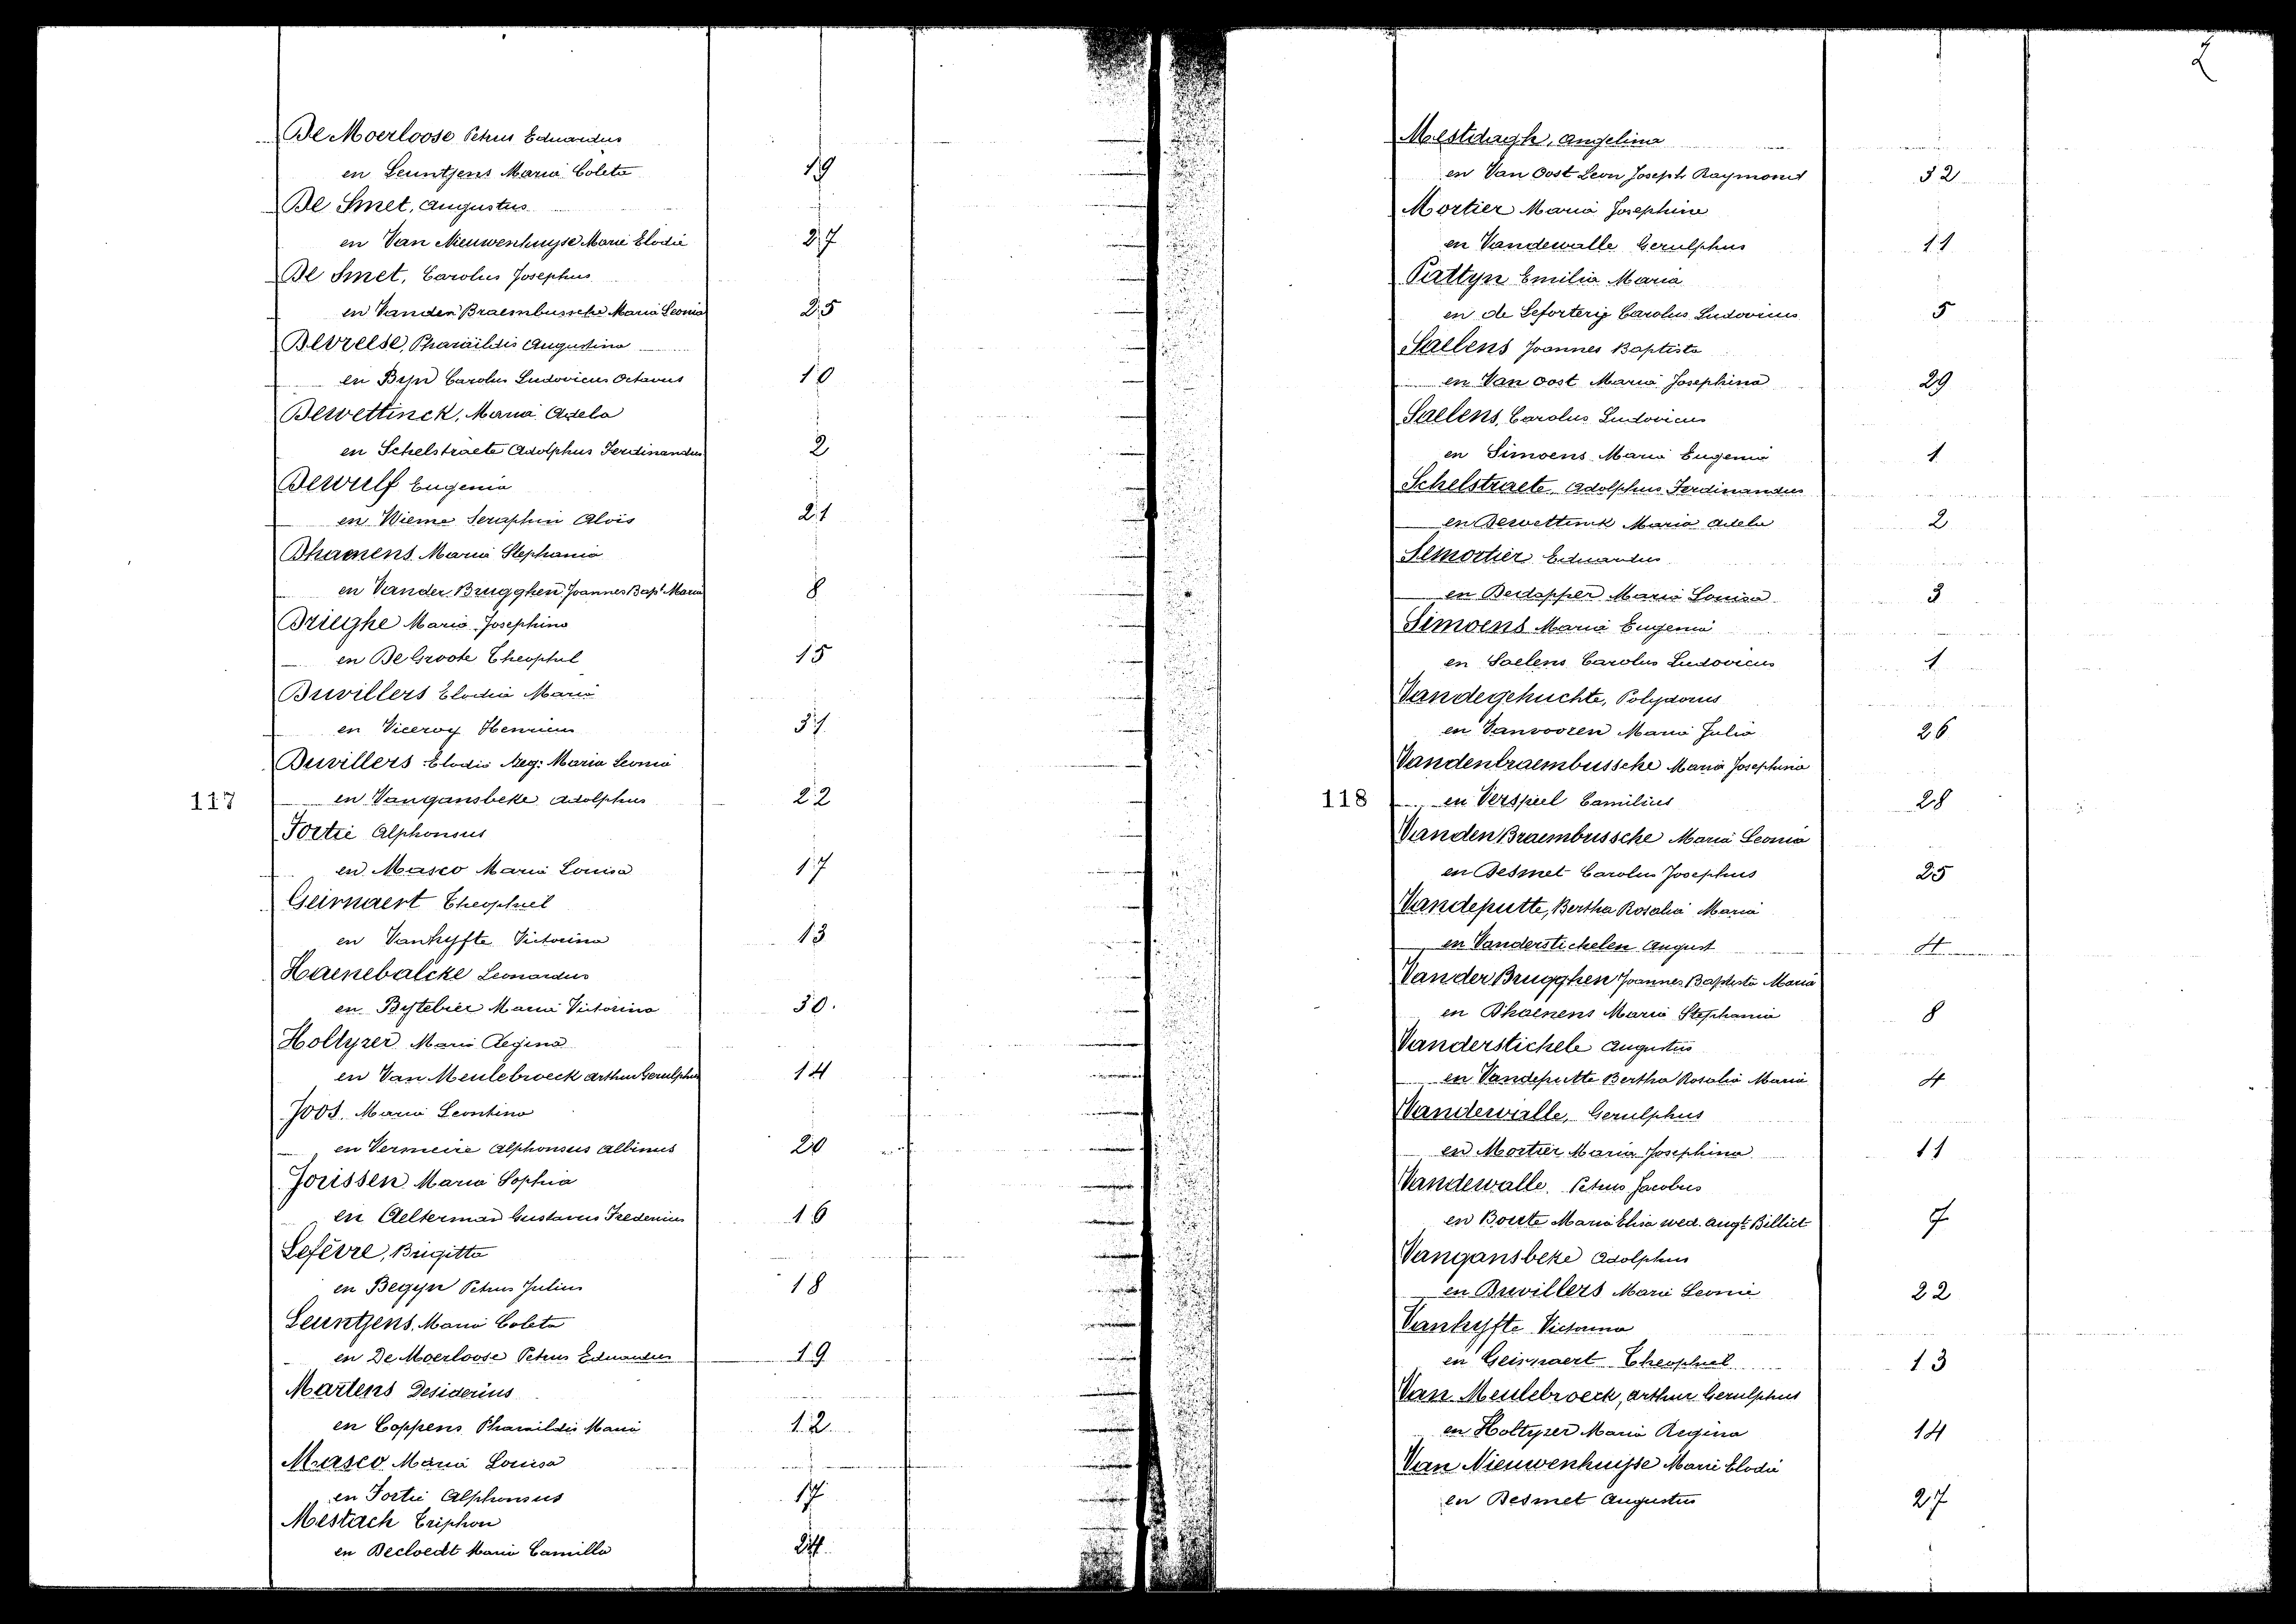 De Moerloose Petrus Eduardus
en Leuntjens Maria Coleta 19
De Smet, Augustus
en Van Nieuwenhuyse Marie Elodie 27
De Smet, Carolus Josephus
en Vanden Braembussche Maria Leonia 25
Devreese, Pharaildis Augustina
en Bijn Carolus Ludovicus Octavus 10
Dewettinck, Maria Adela
en Schelstraete Adolphus Ferdinandus 2
Dewulf Eugenia
en Wieme Seraphin Alois 21
Dhaenens Maria Stephania
en Vander Brugghen Joannes Bapt Maria 8
Drieghe Maria Josephina
en De Groote Theophiel 15
Duvillers Elodia Maria
en Viceroy Henricus 31
Duvillers Elodie Reg: Maria Leonia
117 en Vangansbeke Adolphus 22
Fortie Alphonsus
en Masco Maria Louisa 17
Geirnaert Theophiel
en Vanhyfte Victorina 13
Haenebalcke Leonardus
en Bytebier Maria Victorina 30.
Holtyzer Maria Regina
en Van Meulebroeck Arthur Gerulphus 14
Joos, Maria Leontina
en Vermeire Alphonsus Albinus 20
Jorissen Maria Sophia
en Aelterman Gustavus Fredericus 16
Lefèvre, Brigitta
en Begyn Petrus Julius 18
Leuntjens, Maria Coleta
en De Moerloose Petrus Eduardus 19
Martens Desiderius
en Coppens Pharaildis Maria 12
Masco Maria Louisa
en Fortie Alphonsus 17
Mestach Triphon
en Decloedt Maria Camilla 24
2
Mestdagh, Angelina
en Van Oost Leon Joseph Raymond 32
Mortier Maria Josephine
en Vandewalle Gerulphus 11
Pattyn Emilia Maria
en de Seforterij Carolus Ludovicus 5
Saelens Joannes Baptista
en Van Oost Maria Josephina 29
Saelens, Carolus Ludovicus
en Simoens Maria Eugenia 1
Schelstraete Adolphus Ferdinandus
en Dewettinck Maria Adela 2
Semortier Eduardus
en Maria Louisa 3
Simoens Maria Eugenia
en Saelens Carolus Ludovicus 1
Vandegehuchte, Polydorus
en Vanvooren Maria Julia 26
Vandenbraembussche Maria Josephina
118 en Verspeel Camilius 28
Vanden Braembussche Maria Leonia
en Desmet Carolus Josephus 25
Vandeputte, Bertha Rosalia Maria
en Vanderstichelen August 4
Vander Brugghen Joannes Baptista Maria
en Dhaenens Maria Stephania 8
Vanderstichele Augustus
en Vandeputte Bertha Rosalia Maria 4
Vandewalle, Gerulphus
en Mortier Maria Josephina 11
Vandewalle, Petrus Jacobus
en Boute Maria Elisa wed. Augt Billiet 7
Vangansbeke Adolphus
en Duvillers Marie Leonie 22
Vanhyfte Victorina
en Geirnaert Theophiel 13
Van Meulebroeck, Arthur Gerulphus
en Holtyzer Maria Regina 14
Van Nieuwenhuijse Marie Elodie
en Desmet Augustus 27